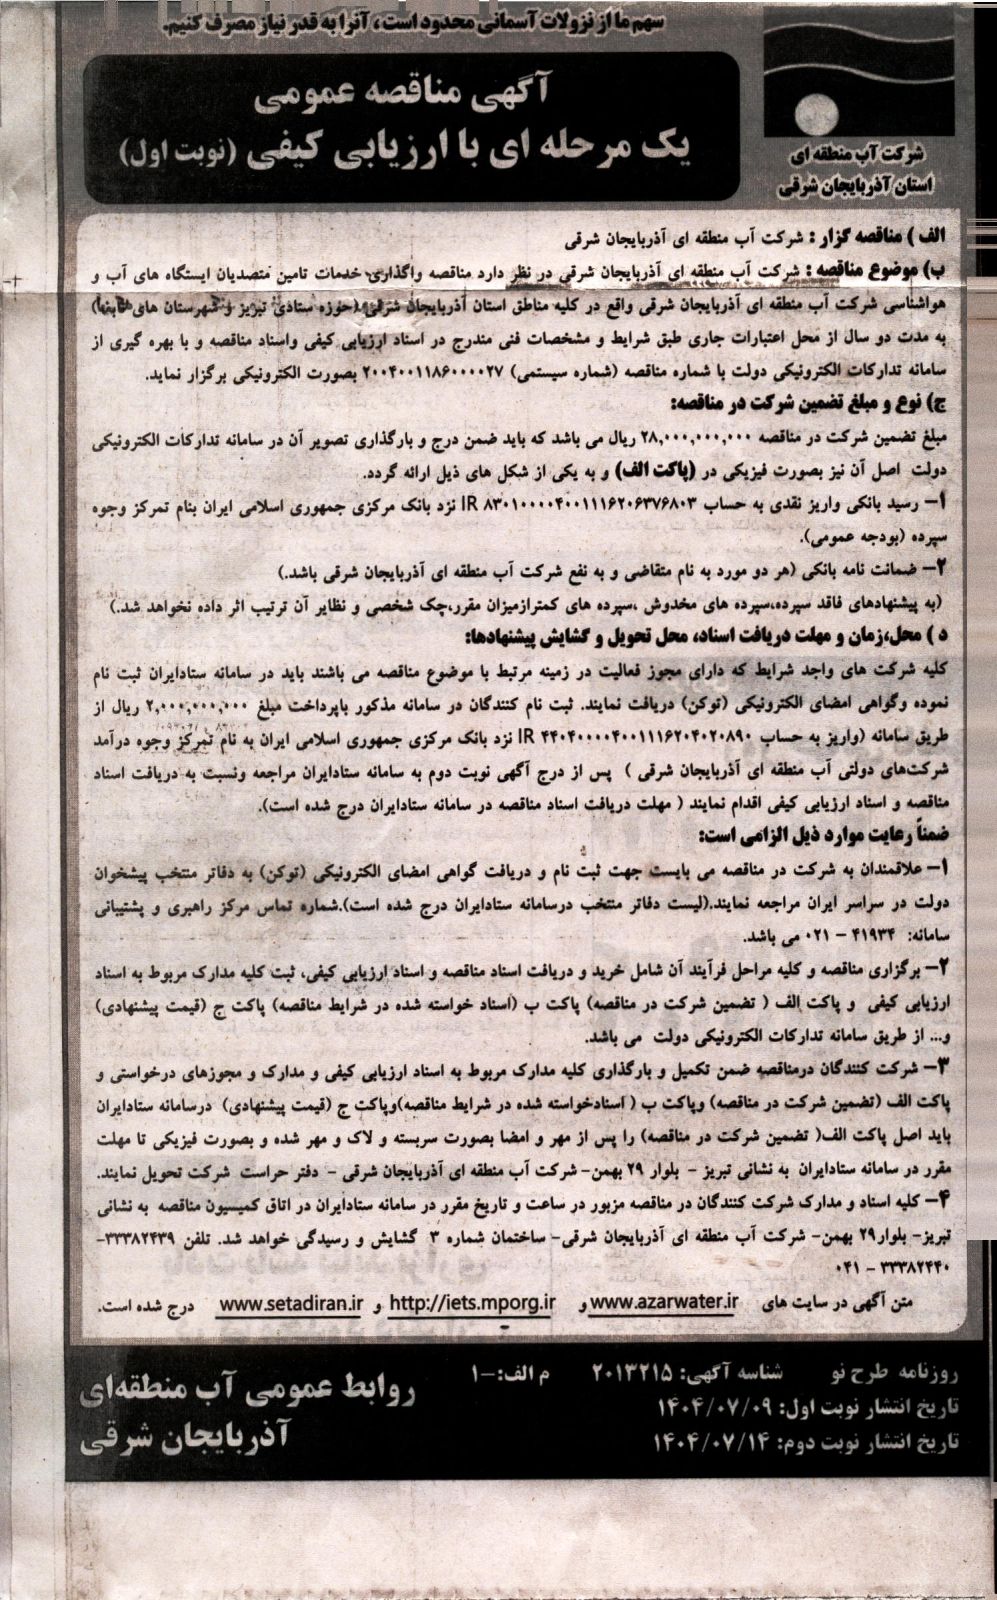 سهم ما از نزولات آسمانی محدود است، آنرا به قدر نیاز مصرف کنیم.
آگهی مناقصه عمومی
یک مرحله ای با ارزیابی کیفی (نوبت اول)
شرکت آب منطقه ای
استان آذربایجان شرقی
الف ) مناقصه گزار : شرکت آب منطقه ای آذربایجان شرقی
ب) موضوع مناقصه : شرکت آب منطقه ای آذربایجان شرقی در نظر دارد مناقصه واگذاری خدمات تامین متصدیان ایستگاه های آب و
هواشناسی شرکت آب منطقه ای آذربایجان شرقی واقع در کلیه مناطق استان آذربایجان شرقی (حوزه ستادی تبریز و شهرستان های تابعه)
به مدت دو سال از محل اعتبارات جاری طبق شرایط و مشخصات فنی مندرج در اسناد ارزیابی کیفی واسناد مناقصه و با بهره گیری از
سامانه تدارکات الکترونیکی دولت با شماره مناقصه (شماره سیستمی) ۲۰۰۴۰۰۱۱۸۶۰۰۰۰۲۷ بصورت الکترونیکی برگزار نماید.
ج) نوع و مبلغ تضمین شرکت در مناقصه:
مبلغ تضمین شرکت در مناقصه ۲۸,۰۰۰,۰۰۰,۰۰۰ ریال می باشد که باید ضمن درج و بارگذاری تصویر آن در سامانه تدارکات الکترونیکی
دولت اصل آن نیز بصورت فیزیکی در (پاکت الف) و به یکی از شکل های ذیل ارائه گردد.
۱- رسید بانکی واریز نقدی به حساب IR ۸۳۰۱۰۰۰۰۴۰۰۱۱۱۶۲۰۶۳۷۶۸۰۳ نزد بانک مرکزی جمهوری اسلامی ایران بنام تمرکز وجوه
سپرده (بودجه عمومی).
۲- ضمانت نامه بانکی (هر دو مورد به نام متقاضی و به نفع شرکت آب منطقه ای آذربایجان شرقی باشد.)
(به پیشنهادهای فاقد سپرده،سپرده های مخدوش ،سپرده های کمترازمیزان مقرر،چک شخصی و نظایر آن ترتیب اثر داده نخواهد شد.)
د ) محل،زمان و مهلت دریافت اسناد، محل تحویل و گشایش پیشنهادها:
کلیه شرکت های واجد شرایط که دارای مجوز فعالیت در زمینه مرتبط با موضوع مناقصه می باشند باید در سامانه ستادایران ثبت نام
نموده وگواهی امضای الکترونیکی (توکن) دریافت نمایند. ثبت نام کنندگان در سامانه مذکور باپرداخت مبلغ ۲,۰۰۰,۰۰۰,۰۰۰ ریال از
طریق سامانه (واریز به حساب IR ۴۴۰۴۰۰۰۰۴۰۰۱۱۱۶۲۰۴۰۲۰۸۹۰ نزد بانک مرکزی جمهوری اسلامی ایران به نام تمرکز وجوه درآمد
شرکت‌های دولتی آب منطقه ای آذربایجان شرقی ) پس از درج آگهی نوبت دوم به سامانه ستادایران مراجعه ونسبت به دریافت اسناد
مناقصه و اسناد ارزیابی کیفی اقدام نمایند ( مهلت دریافت اسناد مناقصه در سامانه ستادایران درج شده است).
ضمناً رعایت موارد ذیل الزامی است:
۱- علاقمندان به شرکت در مناقصه می بایست جهت ثبت نام و دریافت گواهی امضای الکترونیکی (توکن) به دفاتر منتخب پیشخوان
دولت در سراسر ایران مراجعه نمایند.(لیست دفاتر منتخب درسامانه ستادایران درج شده است).شماره تماس مرکز راهبری و پشتیبانی
سامانه: ۴۱۹۳۴ - ۰۲۱ می باشد.
۲- برگزاری مناقصه و کلیه مراحل فرآیند آن شامل خرید و دریافت اسناد مناقصه و اسناد ارزیابی کیفی، ثبت کلیه مدارک مربوط به اسناد
ارزیابی کیفی و پاکت الف ( تضمین شرکت در مناقصه) پاکت ب (اسناد خواسته شده در شرایط مناقصه) پاکت ج (قیمت پیشنهادی)
و... از طریق سامانه تدارکات الکترونیکی دولت می باشد.
۳- شرکت کنندگان درمناقصه ضمن تکمیل و بارگذاری کلیه مدارک مربوط به اسناد ارزیابی کیفی و مدارک و مجوزهای درخواستی و
پاکت الف (تضمین شرکت در مناقصه) وپاکت ب ( اسنادخواسته شده در شرایط مناقصه)وپاکت ج (قیمت پیشنهادی) درسامانه ستادایران
باید اصل پاکت الف( تضمین شرکت در مناقصه) را پس از مهر و امضا بصورت سربسته و لاک و مهر شده و بصورت فیزیکی تا مهلت
مقرر در سامانه ستادایران به نشانی تبریز - بلوار ۲۹ بهمن- شرکت آب منطقه ای آذربایجان شرقی - دفتر حراست شرکت تحویل نمایند.
۴- کلیه اسناد و مدارک شرکت کنندگان در مناقصه مزبور در ساعت و تاریخ مقرر در سامانه ستادایران در اتاق کمیسیون مناقصه به نشانی
تبریز- بلوار۲۹ بهمن- شرکت آب منطقه ای آذربایجان شرقی- ساختمان شماره ۳ گشایش و رسیدگی خواهد شد. تلفن ۳۳۳۸۲۴۳۹-
۳۳۳۸۲۴۴۰ - ۰۴۱
متن آگهی در سایت های www.azarwater.ir و http://iets.mporg.ir و www.setadiran.ir درج شده است.
روزنامه طرح نو شناسه آگهی: ۲۰۱۳۲۱۵ م الف: -۱
تاریخ انتشار نوبت اول: ۱۴۰۴/۰۷/۰۹
تاریخ انتشار نوبت دوم: ۱۴۰۴/۰۷/۱۴
روابط عمومی آب منطقه‌ای
آذربایجان شرقی